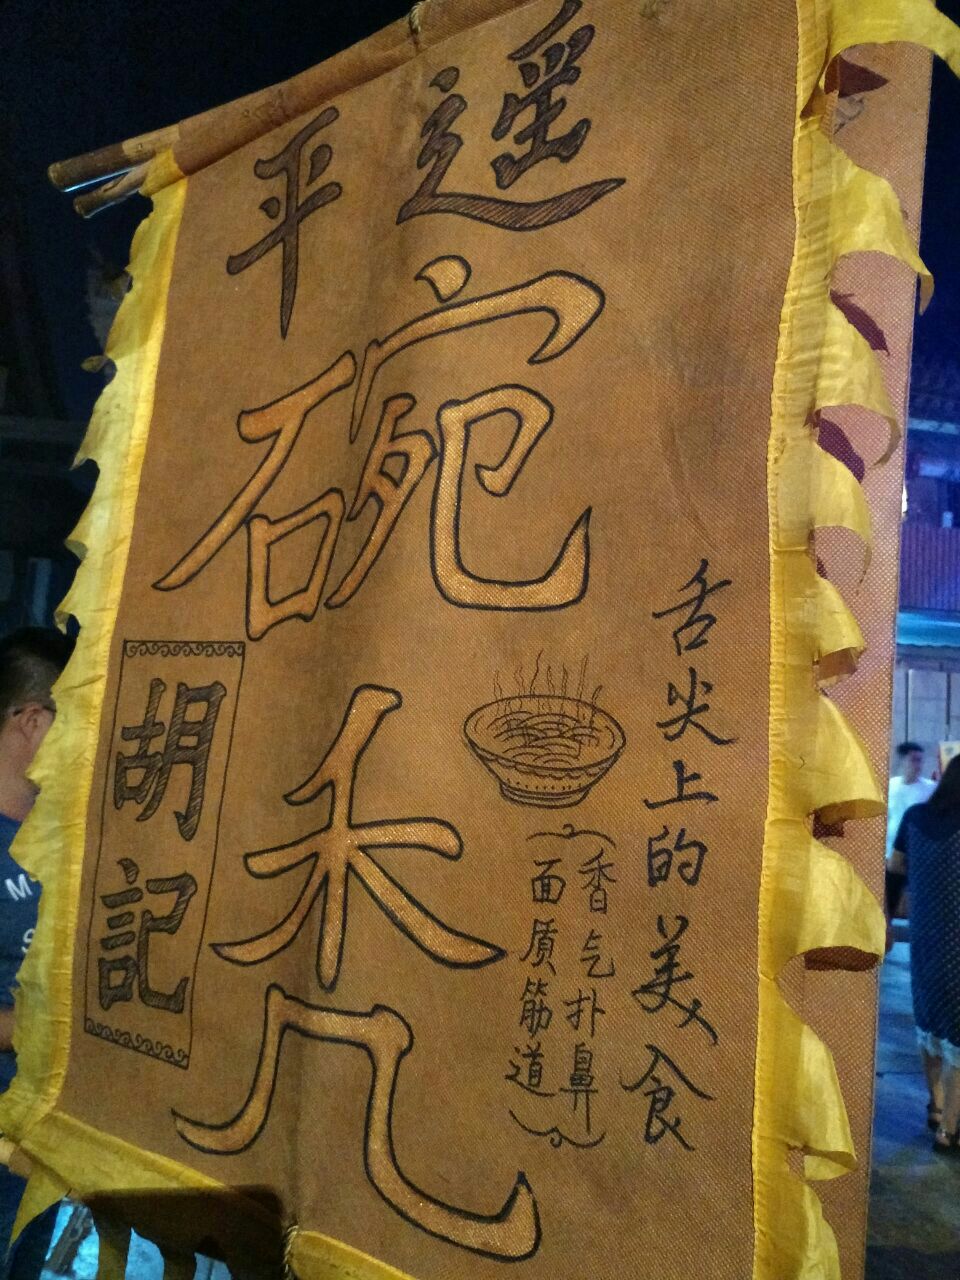 平遥
碗秃
舌尖上的美食
香气扑鼻
面质筋道
胡記